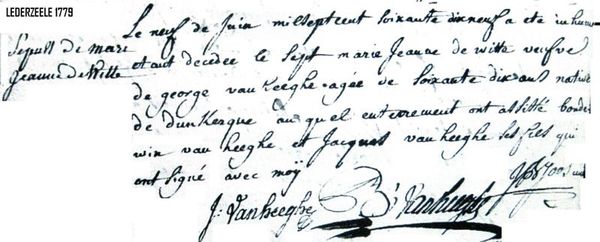 LEDERZEELE 1779
Sépult de marie
Jeanne de Witte
Le neuf de Juin mil sept cent soixante dix neuf a eté inhumee
etant decedée le sept marie Jeanne de witte veufve
de george van Keeghe agée de soixante dix ans native
de dunkerque au quel enterrement ont assisté boude
win van heeghe et Jacques van heeghe ses fils qui
ont signé avec moÿ
J: Vanheeghe B: Vanheeghe